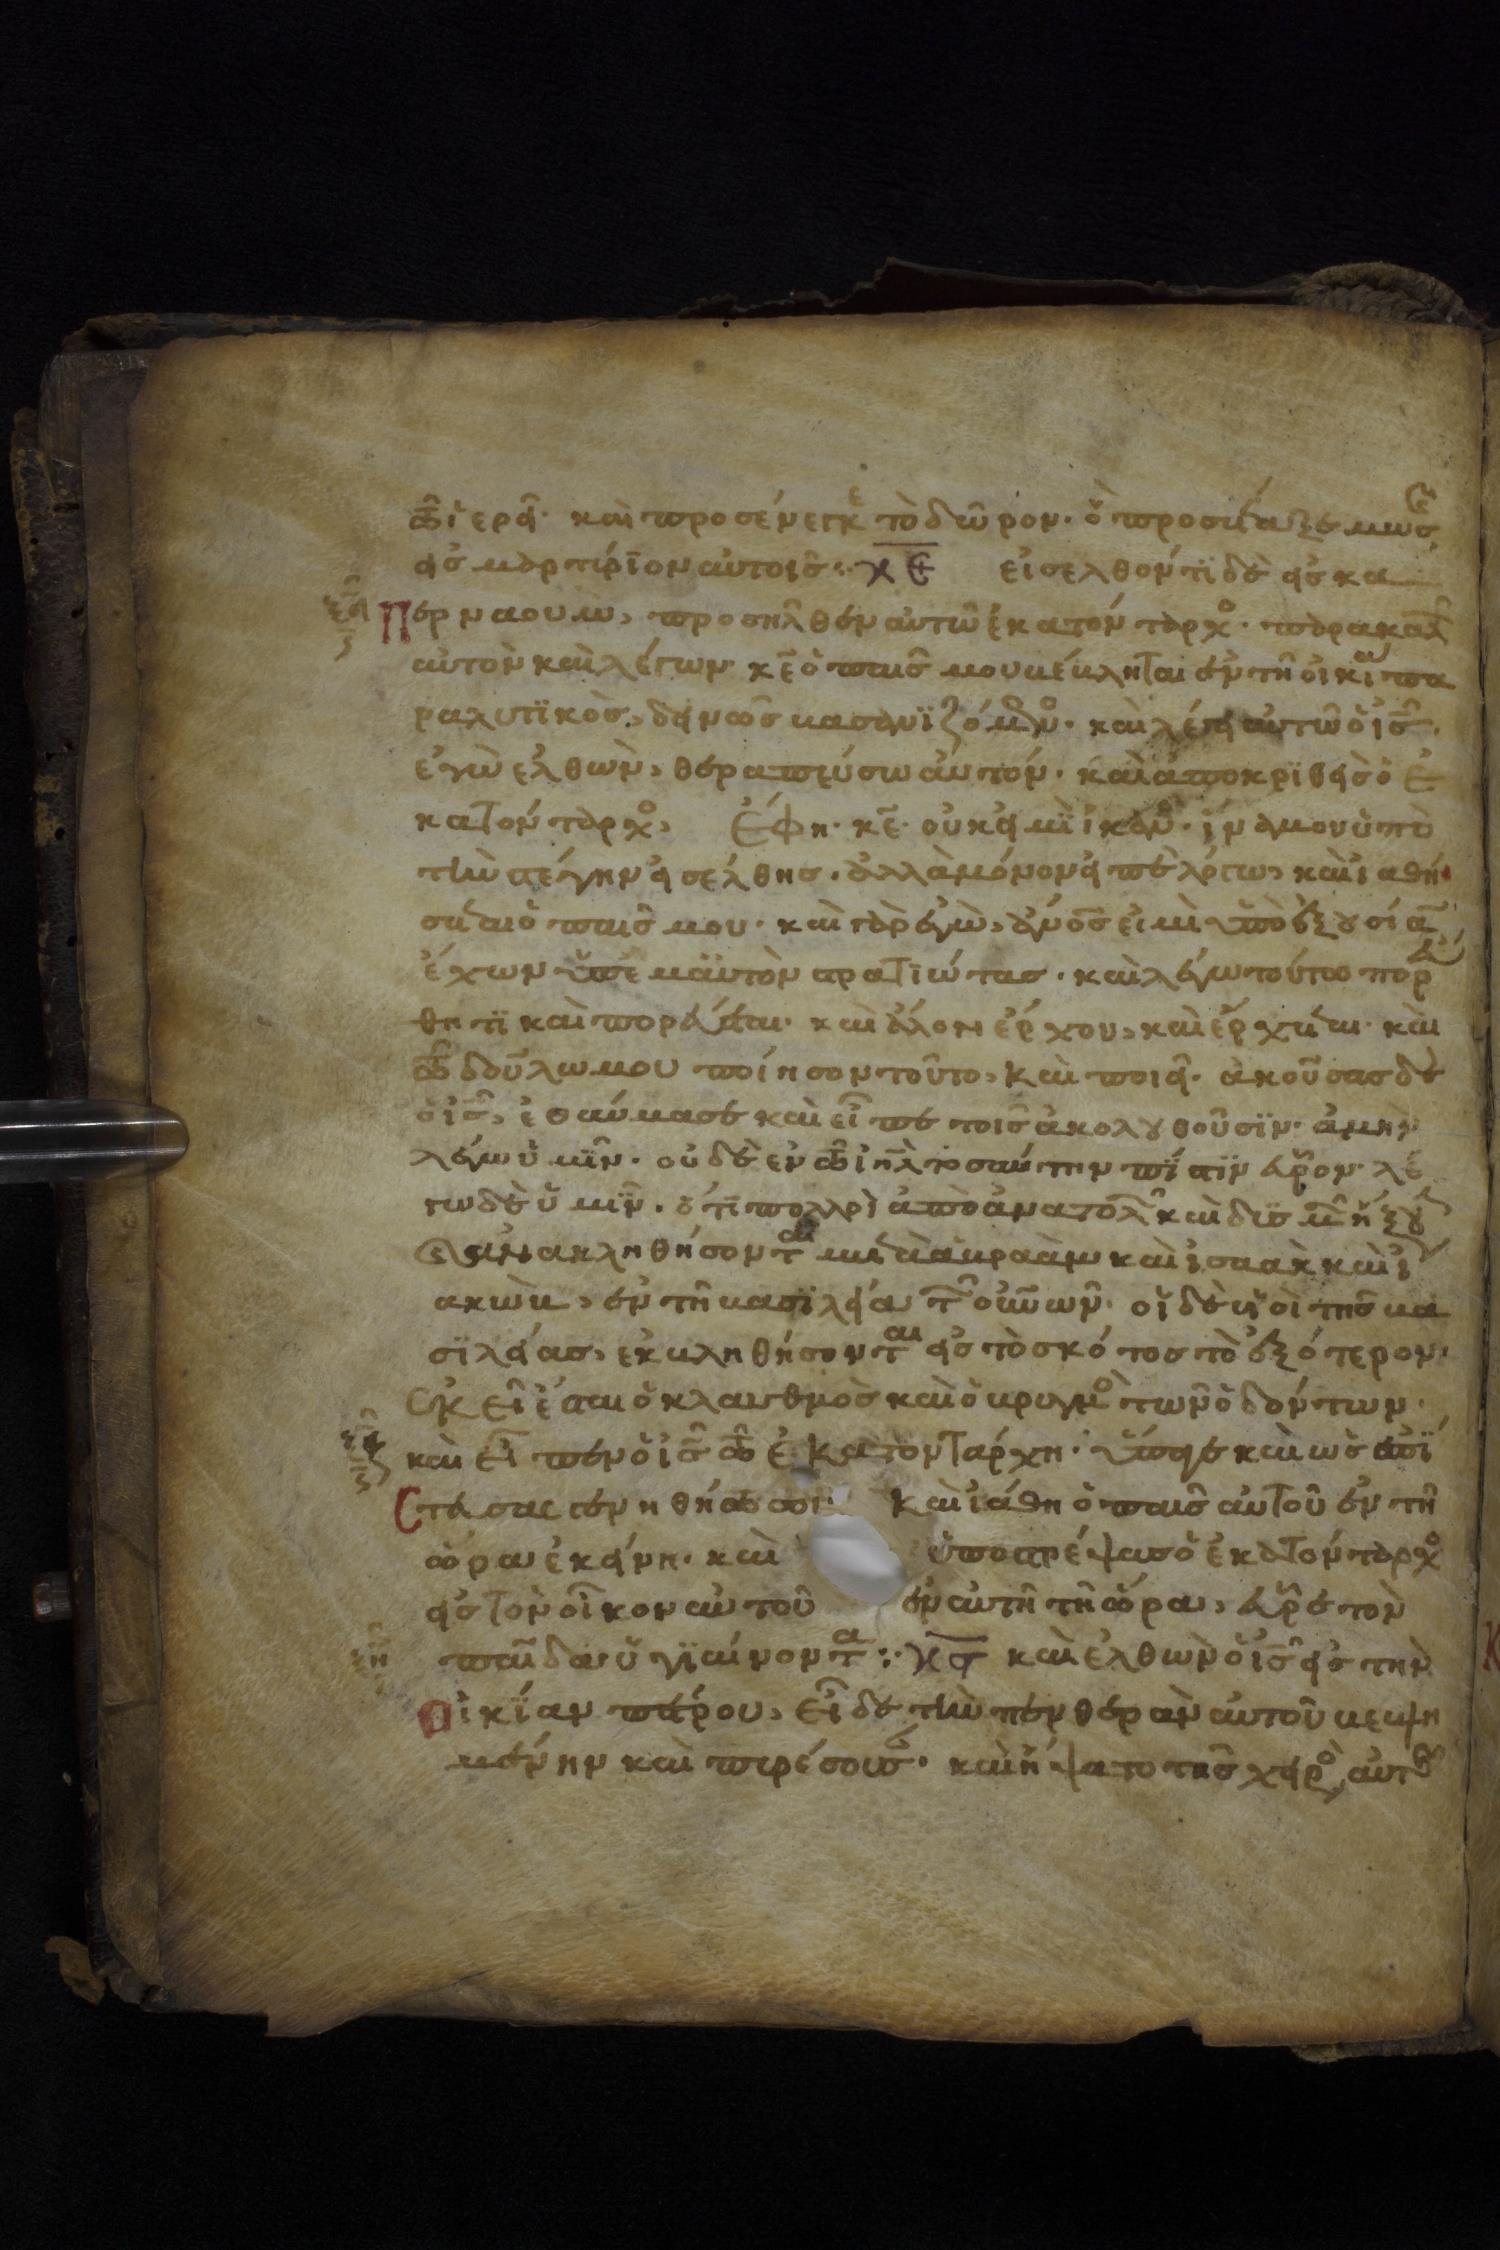 τῶ ἱερεῖ· καὶ προσένεγκε τὸ δῶρον· ὃ προσέταξε μωσῆς
εἰς μαρτύριον αὐτοῖς: κε εἰσελθόντι δὲ εἰς κα
περναουμ, προσῆλθεν αὐτῶ ἑκατόνταρχος· παρακαλῶν
αὐτὸν καὶ λέγων· κε ὁ παῖς μου βέβληται ἐν τῆ οἰκία πα
ραλυτϊκὸς, δεινῶς βασανϊζόμενος· καὶ λέγει αὐτῶ ὁ ις·
ἐγὼ ἐλθὼν, θεραπεύσω αὐτόν· καὶ ἀποκρϊθεὶς ὁ ἑ
κατόνταρχος, ἔφη· κε· οὐκ εἰμὶ ἱκανὸς· ἵνα μου ὑπὸ
τὴν στέγην εἰσέλθης· ἀλλὰ μόνον εἰπὲ λόγω, καὶ ἰαθή
σεται ὁ παῖς μου· καὶ γὰρ ἐγὼ, ἄνος εἰμὶ ὑπὸ ἐξουσίαν
ἔχων ὑπ' ἐμαυτὸν στρατϊώτας· καὶ λέγω τούτω πορεύ
θητϊ καὶ πορεύεται· καὶ ἄλλω ἔρχου, καὶ ἔρχεται· καὶ
τῶ δούλω μου ποίησον τοῦτο, καὶ ποιεῖ· ἀκούσας δὲ
ὁ ις, ἐθαύμασε καὶ εἶπε τοῖς ἀκολουθοῦσϊν· ἀμὴν
λέγω ὑμῖν· οὐδὲ ἐν τῶ ιηλ τοσαύτην πίστϊν εὗρον· λέ
γω δὲ ὑμῖν· ὅτϊ πολλοὶ ἀπὸ ἀνατολῶν καὶ δϋσμῶν ἥξου
σι καὶ ἀνακληθήσονται μετὰ ἀβραὰμ καὶ ἰσαὰκ καὶ ἰ
ακὼβ, ἐν τῆ βασϊλεία τῶν ουνων· οἱ δὲ υἱοὶ τῆς βα
σϊλείας, ἐκβληθήσονται εἰς τὸ σκότος τὸ ἐξότερον·
ἐκεῖ ἔσται ὁ κλαυθμὸς καὶ ὁ βρυγμὸς τῶν ὀδόντων·
καὶ εἶπεν ὁ ις τῶ ἑκατοντάρχη· ὕπαγε καὶ ὡς ἐπϊ
στευσας γενηθήτω σοι· καὶ ἰάθη ὁ παῖς αὐτοῦ ἐν τῆ
ὥρα ἐκείνη· καὶ ὑποστρέψας ὁ ἑκατόνταρχος
εἰς τὸν οἶκον αὐτοῦ ἐν αὐτῆ τῆ ὥρα, εὗρε τὸν
παῖδα ὑγϊαίνοντα: κϛ καὶ ἐλθὼν ὁ ις εἰς τὴν
οἰκϊαν πέτρου, εἶδε τὴν πενθερὰν αὐτοῦ βεβλη
μένην καὶ πυρέσσουσαν· καὶ ἥψατο τῆς χειρὸς αὐτῆς